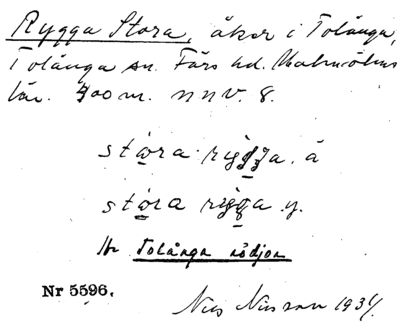 Rygga Stora, åker i Tolånga,
Tolånga sn. Färs hd. Malmöhus
län. 400 m. n n v. 8.
stora rigga. ä
stora rigga y.
Tolånga rödjor
Nr 5596.
Nils Nilsson 1934.